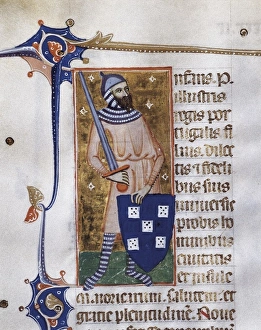 nfans .P.
illustris
regis por
tugalis fi
lius dilec
tis et fideli
bus suis
probis ho
minibus
ciuitatis
et insule
salutem et
gratie plenitudinē. Noue